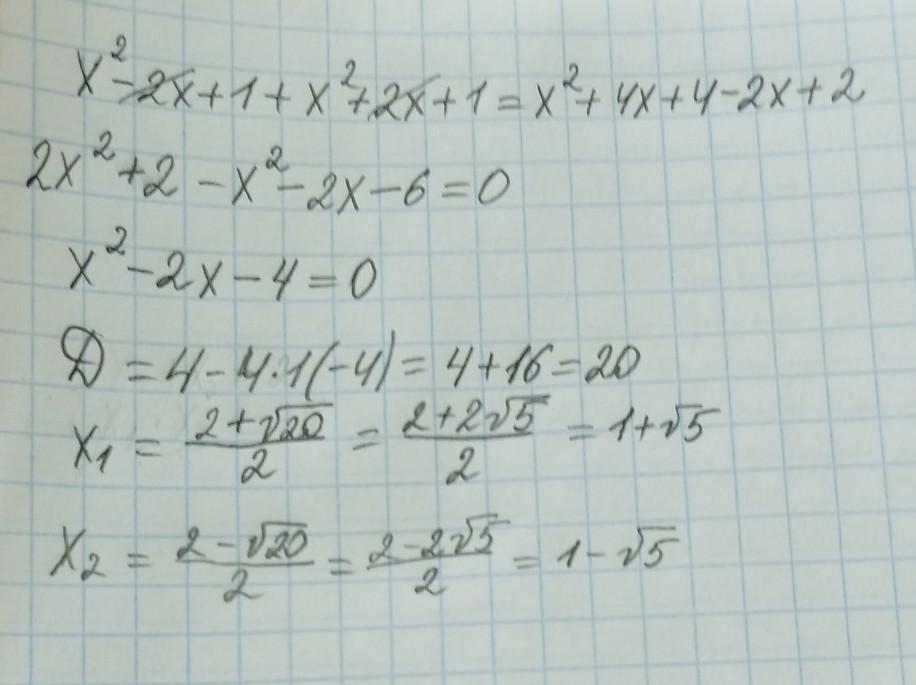 x² - 2x + 1 + x² + 2x + 1 = x² + 4x + 4 - 2x + 2
2x² + 2 - x² - 2x - 6 = 0
x² - 2x - 4 = 0
D = 4 - 4·1(-4) = 4 + 16 = 20
x₁ = (2 + √20)/2 = (2 + 2√5)/2 = 1 + √5
x₂ = (2 - √20)/2 = (2 - 2√5)/2 = 1 - √5